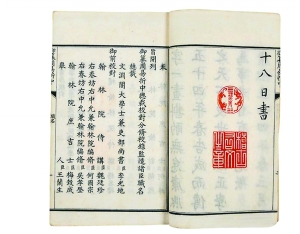 十八日書
奉
旨開列
御纂周易折中總裁校對分修校錄監造諸臣職名
總裁
文淵閣大學士兼吏部尚書臣李光地
御前校對
翰林院侍講臣魏廷珍
右春坊右中允兼翰林院編修臣何國宗
右春坊右中允兼翰林院編修臣吳孝登
翰林院庶吉士臣梅瑴成
舉人臣王蘭生